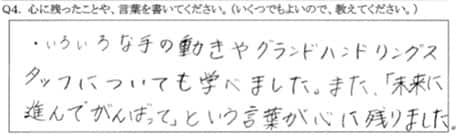 Q4. 心に残ったことや、言葉を書いてください。（いくつでもよいので、教えてください。）
・いろいろな手の動きやグランドハンドリングス
タッフについても学べました。また、「未来に
進んでがんばって」という言葉が心に残りました。